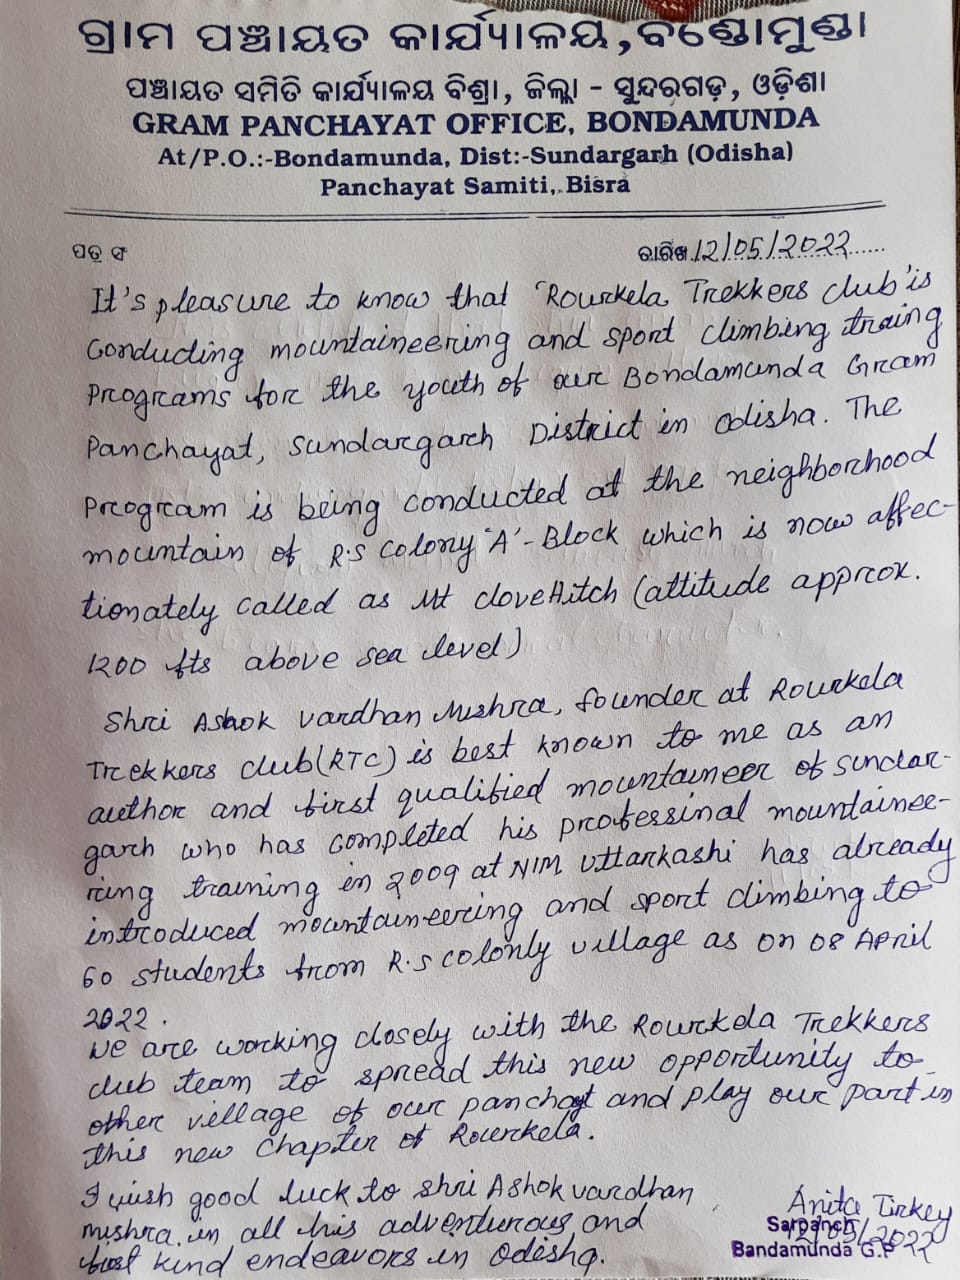 ଗ୍ରାମ ପଞ୍ଚାୟତ କାର୍ଯ୍ୟାଳୟ, ବଣ୍ଡୋମୁଣ୍ଡା
ପଞ୍ଚାୟତ ସମିତି କାର୍ଯ୍ୟାଳୟ ବିଶ୍ରା, ଜିଲ୍ଲା - ସୁନ୍ଦରଗଡ଼, ଓଡ଼ିଶା
GRAM PANCHAYAT OFFICE, BONDAMUNDA
At/P.O.:-Bondamunda, Dist:-Sundargarh (Odisha)
Panchayat Samiti, Bisra
ପତ୍ର ସଂ
ତାରିଖ 12/05/2022
It's pleasure to know that 'Rourkela Trekkers club' is
Conducting mountaineering and sport climbing traing
Programs for the youth of our Bondamunda Gram
Panchayat, Sundargarh District in Odisha. The
Program is being conducted at the neighborhood
mountain of R.S Colony 'A'-Block which is now affec-
tionately called as Mt CloveHitch (attitude approx.
1200 fts above sea level)
Shri Ashok Vardhan Mishra, founder at Rourkela
Trekkers club (RTC) is best known to me as an
author and first qualified mountaineer of Sundar-
garh who has completed his professinal mountainee-
ring training in 2009 at NIM Uttarkashi has already
introduced mountaineering and sport climbing to
60 students from R.S colonly village as on 08 April
2022.
We are working closely with the Rourkela Trekkers
club team to spread this new opportunity to
other village of our panchayt and play our part in
this new Chapter of Rourkela.
I wish good luck to Shri Ashok vardhan
mishra in all his adventurous and
first kind endeavors in Odisha.
Anita Tirkey
Sarpanch
12/05/2022
Bandamunda G.P